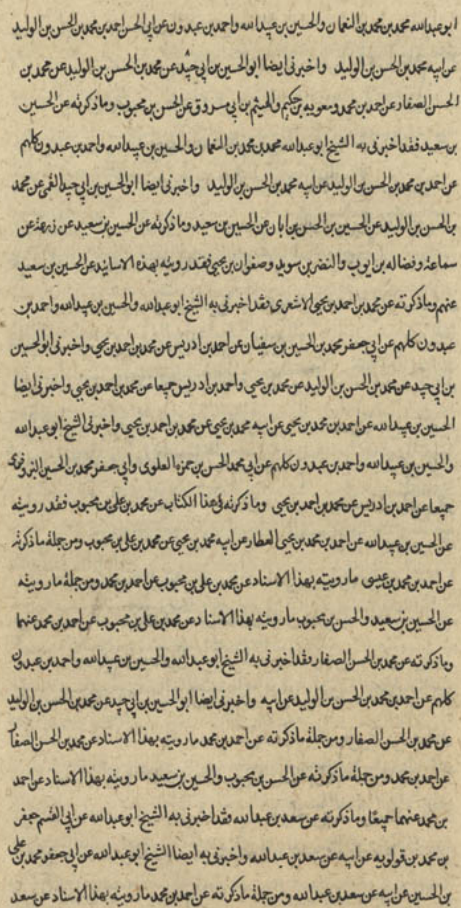 ابو عبدالله محمد بن محمد بن النعمان والحسين بن عبيدالله واحمد بن عبدون عن ابى الحسن احمد بن محمد بن الحسن بن الوليد
عن ابيه محمد بن الحسن بن الوليد واخبرنى ايضا ابو الحسين بن ابى جيد عن محمد بن الحسن بن الوليد عن محمد بن
الحسن الصفار عن احمد بن محمد ومعوية بن حكيم والهيثم بن ابى مسروق عن الحسن بن محبوب وما ذكرته عن الحسين
بن سعيد فقد اخبرنى به الشيخ ابو عبدالله محمد بن محمد بن النعمان والحسين بن عبيدالله واحمد بن عبدون كلهم
عن احمد بن محمد بن الحسن بن الوليد عن ابيه محمد بن الحسن بن الوليد واخبرنى ايضا ابو الحسين بن ابى جيد القمى عن محمد
بن الحسن بن الوليد عن الحسين بن الحسن بن ابان عن الحسين بن سعيد وما ذكرته عن الحسين بن سعيد عن زرعة عن
سماعة وفضاله بن ايوب والنضر بن سويد وصفوان بن يحيى فقد رويته بهذه الاسانيد عن الحسين بن سعيد
عنهم وما ذكرته عن محمد بن احمد بن يحيى الاشعرى فقد اخبرنى به الشيخ ابو عبدالله والحسين بن عبيدالله واحمد بن
عبدون كلهم عن ابى جعفر محمد بن الحسين بن سفيان عن احمد بن ادريس عن محمد بن احمد بن يحيى واخبرنى ابو الحسين
بن ابى جيد عن محمد بن الحسن بن الوليد عن محمد بن يحيى واحمد بن ادريس جميعا عن محمد بن احمد بن يحيى واخبرنى ايضا
الحسين بن عبيدالله عن احمد بن محمد بن يحيى عن ابيه محمد بن يحيى عن محمد بن احمد بن يحيى واخبرنى الشيخ ابو عبدالله
والحسين بن عبيدالله واحمد بن عبدون كلهم عن ابى محمد الحسن بن حمزه العلوى وابى جعفر محمد بن الحسين البزوفرى
جميعا عن احمد بن ادريس عن محمد بن احمد بن يحيى وما ذكرته فى هذا الكتاب عن محمد بن على بن محبوب فقد رويته
عن الحسين بن عبيدالله عن احمد بن محمد بن يحيى العطار عن ابيه محمد بن يحيى عن محمد بن على بن محبوب ومن جملة ما ذكرته
عن احمد بن محمد بن عيسى ما رويته بهذا الاسناد عن محمد بن على بن محبوب عن احمد بن محمد ومن جملة ما رويته
عن الحسين بن سعيد والحسن بن محبوب ما رويته بهذا الاسناد عن محمد بن على بن محبوب عن احمد بن محمد عنهما
وما ذكرته عن محمد بن الحسن الصفار فقد اخبرنى به الشيخ ابو عبدالله والحسين بن عبيدالله واحمد بن عبدون
كلهم عن احمد بن محمد بن الحسن بن الوليد عن ابيه واخبرنى ايضا ابو الحسين بن ابى جيد عن محمد بن الحسن بن الوليد
عن محمد بن الحسن الصفار ومن جملة ما ذكرته عن احمد بن محمد ما رويته بهذا الاسناد عن محمد بن الحسن الصفار
عن احمد بن محمد ومن جملة ما ذكرته عن الحسن بن محبوب والحسين بن سعيد ما رويته بهذا الاسناد عن احمد
بن محمد عنهما جميعا وما ذكرته عن سعد بن عبدالله فقد اخبرنى به الشيخ ابو عبدالله عن ابى القسم جعفر
بن محمد بن قولويه عن ابيه عن سعد بن عبدالله واخبرنى به ايضا الشيخ ابو عبدالله عن ابى جعفر محمد بن على
بن الحسين عن ابيه عن سعد بن عبدالله ومن جملة ما ذكرته عن احمد بن محمد ما رويته بهذا الاسناد عن سعد